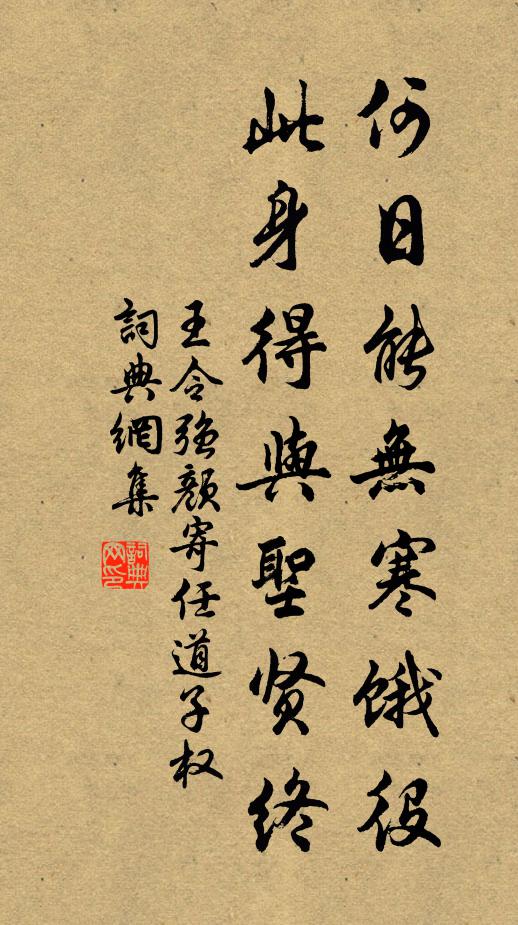 何日能無寒餓役
此身得與聖贤终
王令强顏寄任道子权
詞典網集
詞典網印